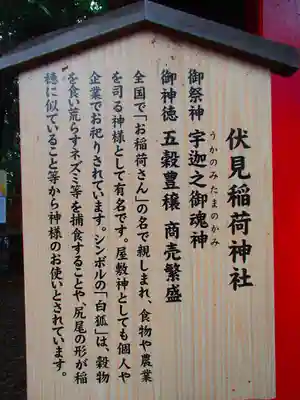 伏見稲荷神社
うかのみたまのかみ
御祭神 宇迦之御魂神
御神徳 五穀豊穣 商売繁盛
全国で「お稲荷さん」の名で親しまれ、食物や農業
を司る神様として有名です。屋敷神としても個人や
企業でお祀りされています。シンボルの「白狐」は、穀物
を食い荒らすネズミ等を捕食することや、尻尾の形が稲
穂に似ていること等から神様のお使いとされています。